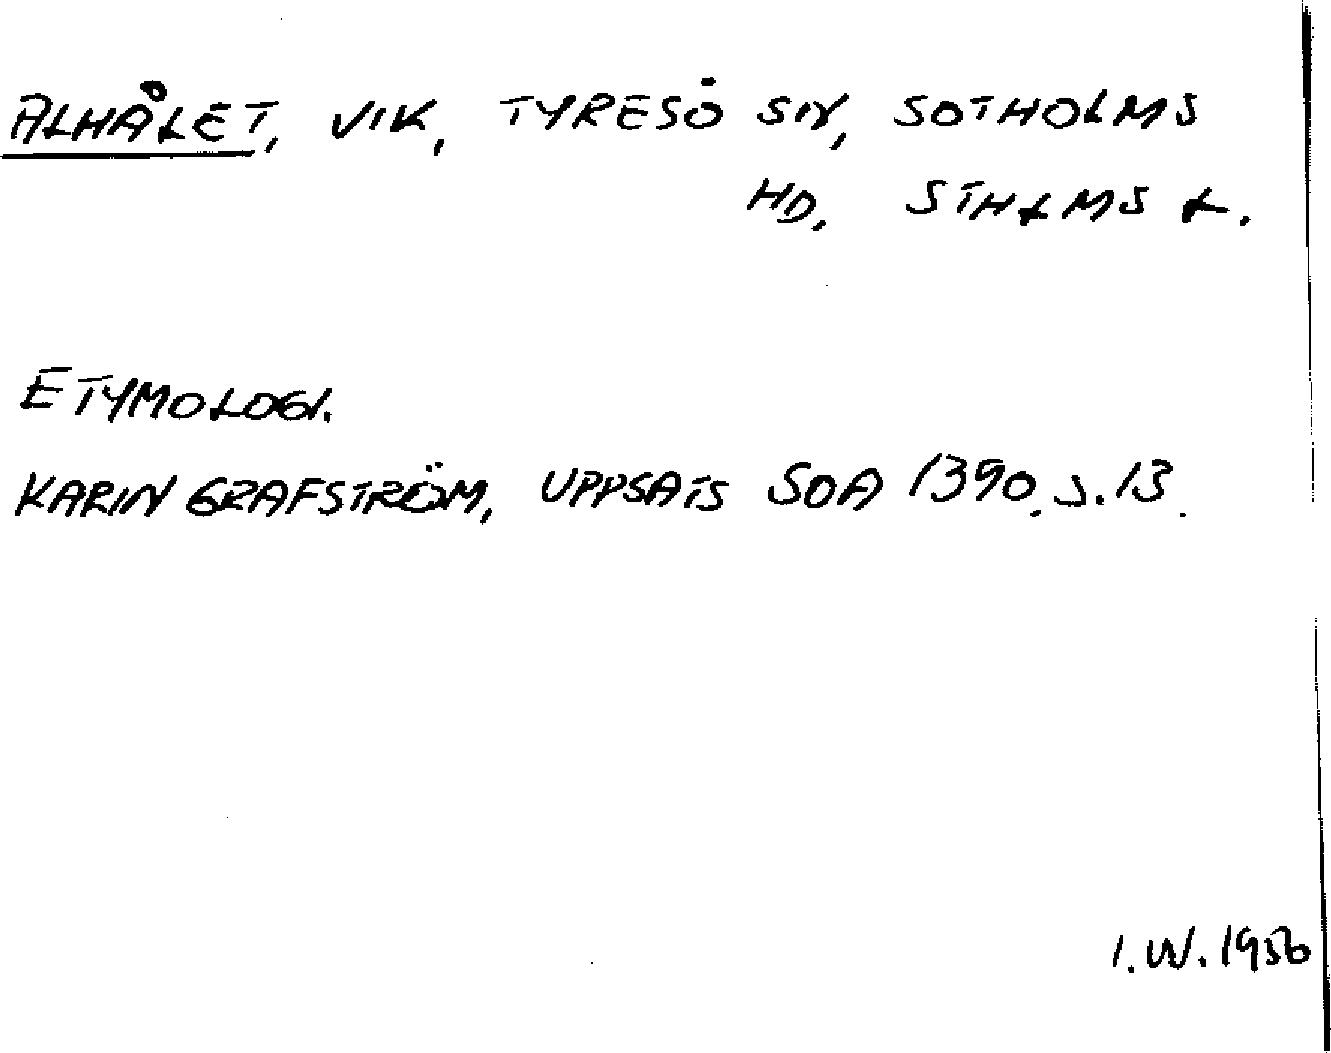 ALHÅLET, VIK, TYRESÖ SN, SOTHOLMS
HD, STHLMS L.
ETYMOLOGI.
KARIN GRAFSTRÖM, UPPSATS SOA 1390. S. 13.
I. W. 1956